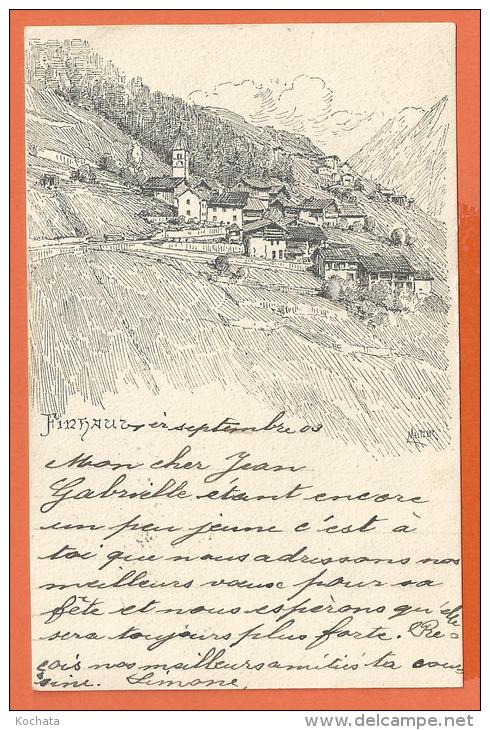 Finhaut, 1er septembre 03
Mon cher Jean
Gabrielle étant encore
un peu jeune c'est à
toi que nous adressons nos
meilleurs vœux pour sa
fête et nous espèrons qu'elle
sera toujours plus forte. Re-
çois nos meilleurs amitiés ta cou-
sine. Simone,
Kochata
www.delcampe.net